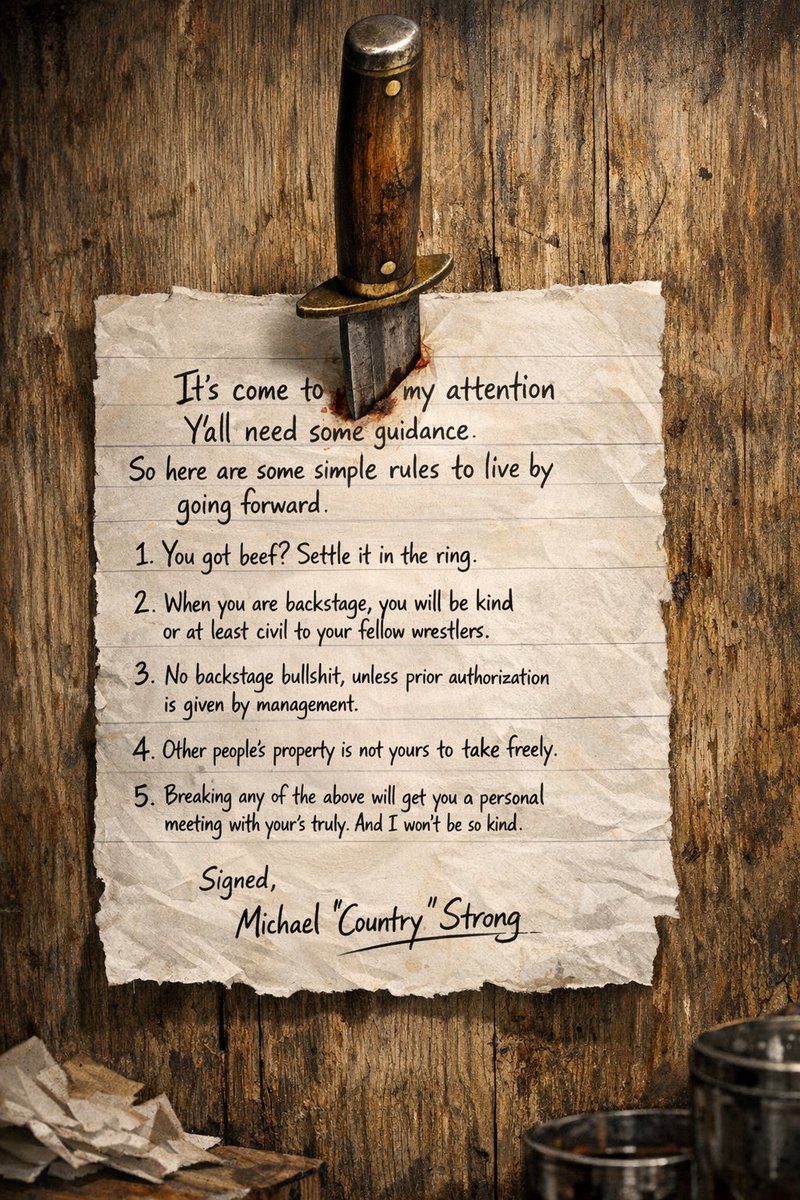 It's come to my attention
Y'all need some guidance.
So here are some simple rules to live by
going forward.
1. You got beef? Settle it in the ring.
2. When you are backstage, you will be kind
or at least civil to your fellow wrestlers.
3. No backstage bullshit, unless prior authorization
is given by management.
4. Other people's property is not yours to take freely.
5. Breaking any of the above will get you a personal
meeting with your's truly. And I won't be so kind.
Signed,
Michael "Country" Strong